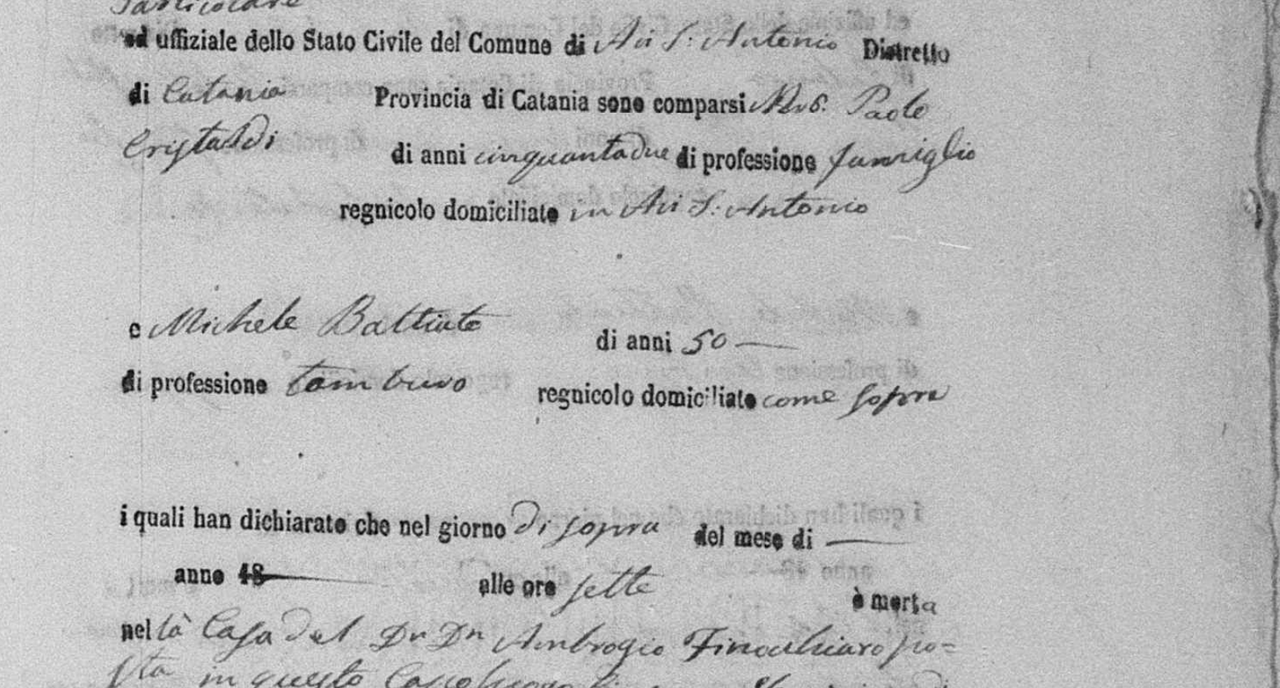 Particolare
ed uffiziale dello Stato Civile del Comune di Aci S. Antonio Distretto
di Catania Provincia di Catania sono comparsi Paolo
Cristaldi di anni cinquantadue di professione famiglio
regnicolo domiciliato in Aci S. Antonio
e Michele Battiato di anni 50
di professione tamburo regnicolo domiciliato come sopra
i quali han dichiarato che nel giorno di sopra del mese di —
anno 18— alle ore sette è morta
nella Casa del Dr Dn Ambrogio Finocchiaro po=
sta in questo